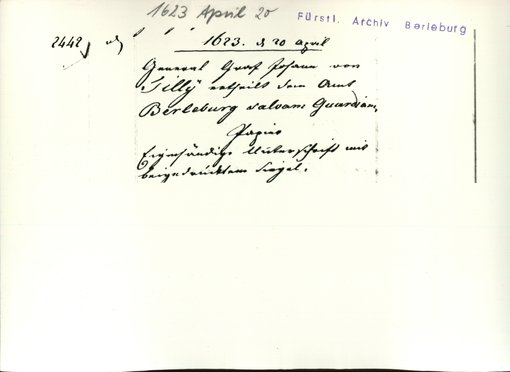 1623 April 20
Fürstl. Archiv Berleburg
2442
1623. d 20 April
General Graf Johann von
Tilly ertheilt dem Amt
Berleburg salvam Guardiam.
Papier
Eigenhändige Unterschrift mit
beigedrücktem Siegel.